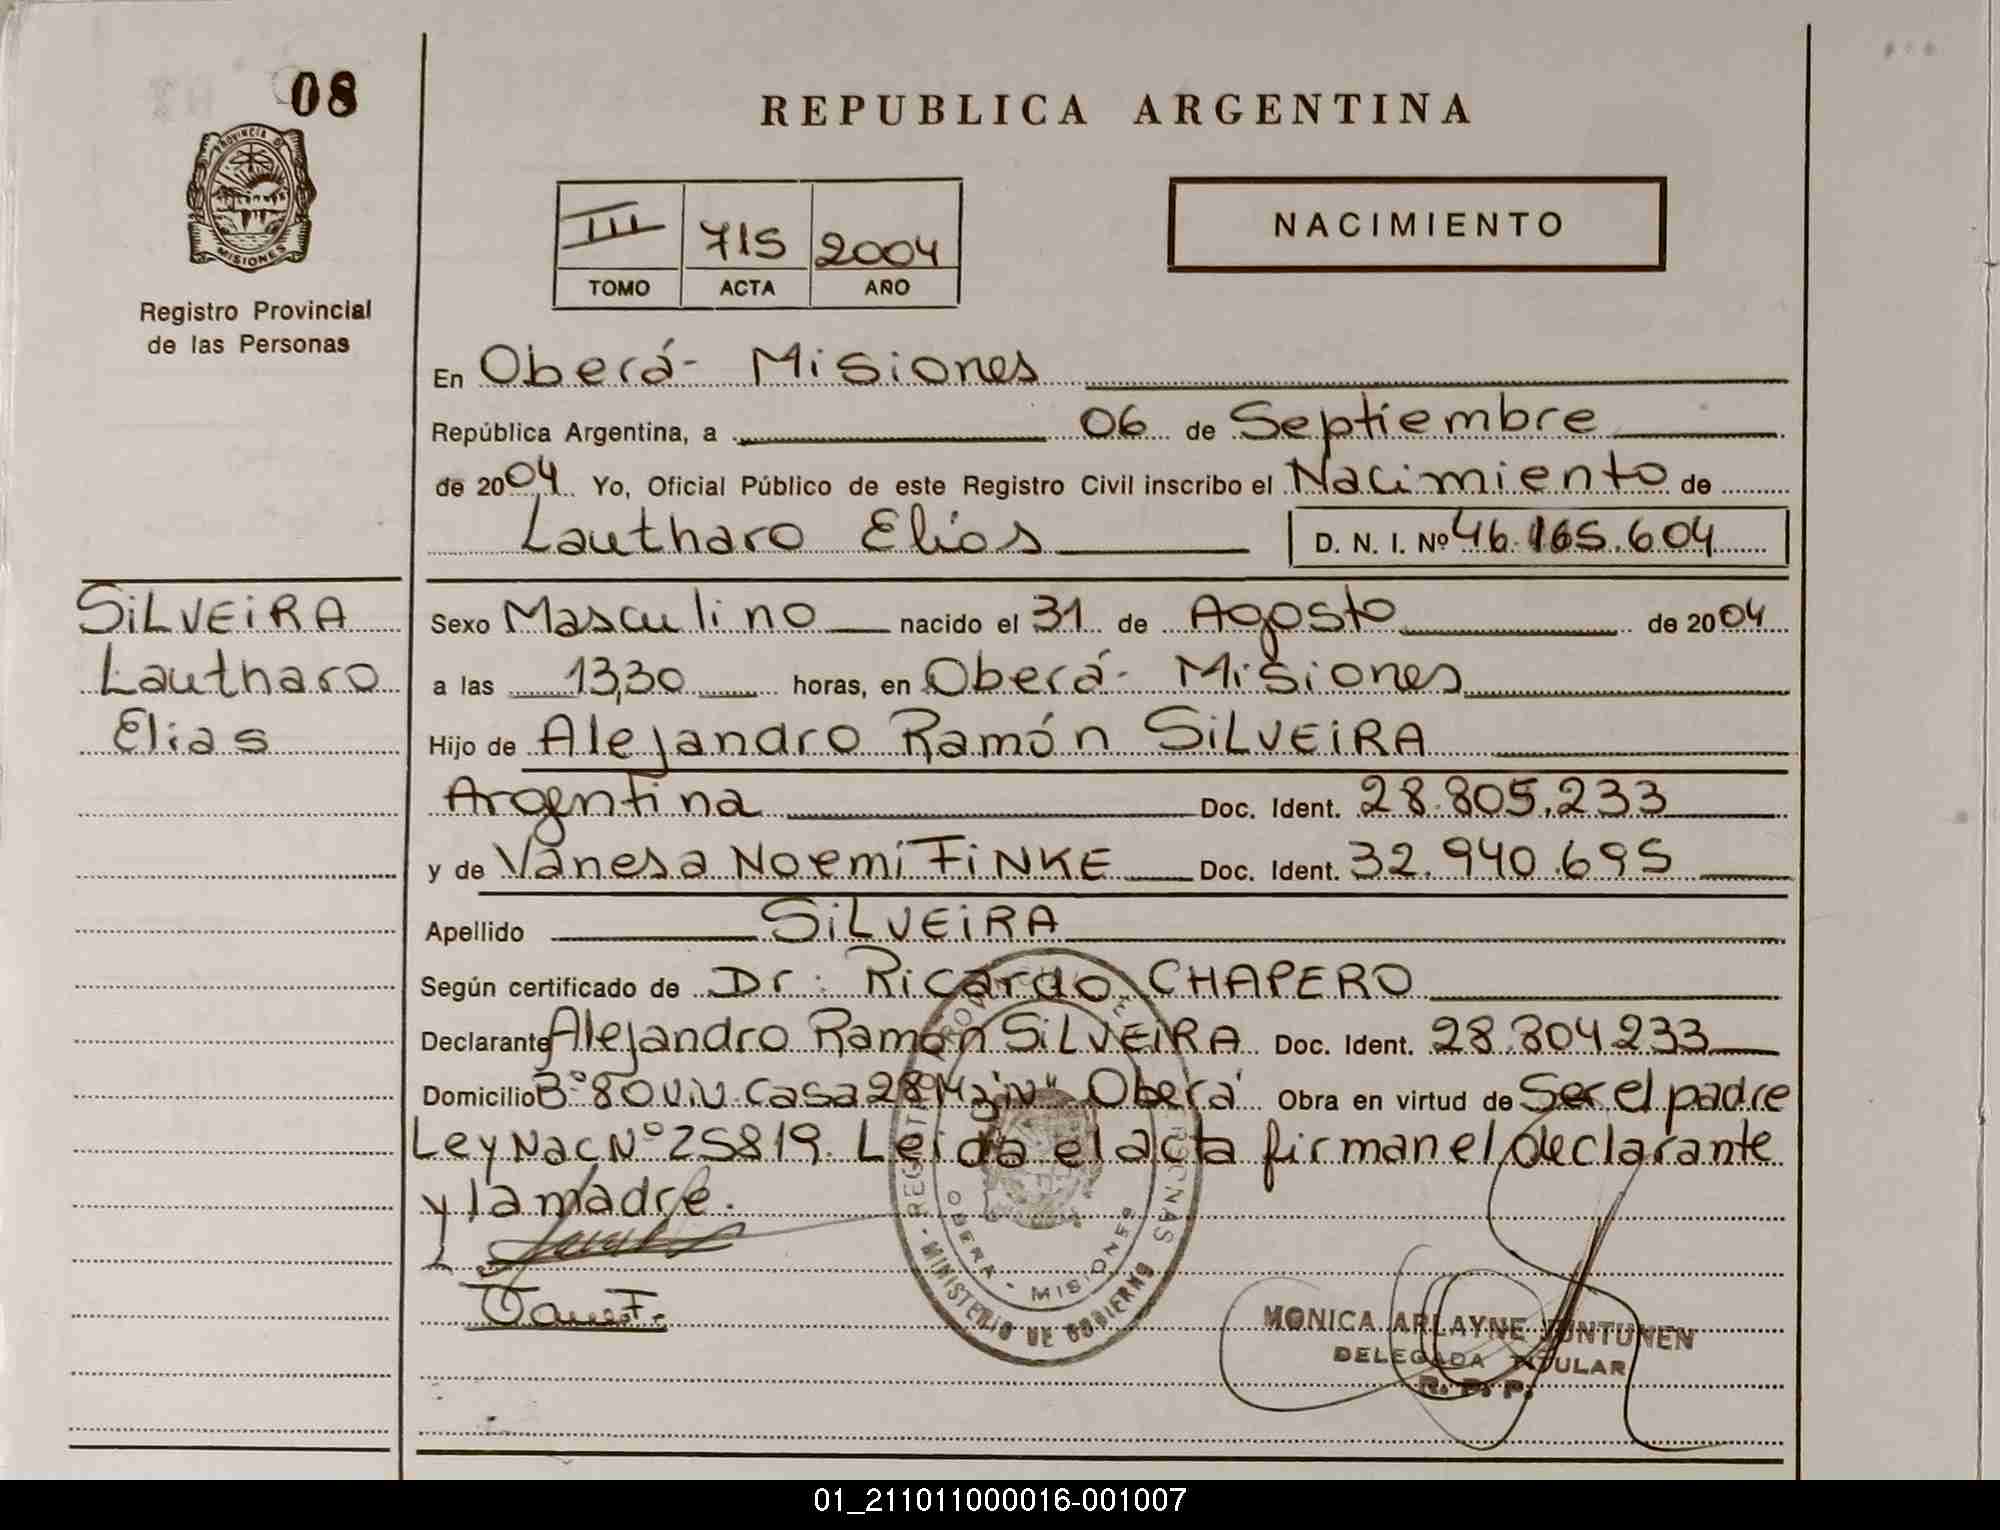 08
REPUBLICA ARGENTINA
PROVINCIA DE
MISIONES
Registro Provincial
de las Personas
III 715 2004
TOMO ACTA AÑO
NACIMIENTO
En Oberá - Misiones
República Argentina, a 06 de Septiembre
de 2004 Yo, Oficial Público de este Registro Civil inscribo el Nacimiento de
Lautharo Elías D. N. I. Nº 46.165.604
SiLVEiRA
Lautharo
Elias
Sexo Masculino nacido el 31 de Agosto de 2004
a las 13,30 horas, en Oberá - Misiones
Hijo de Alejandro Ramón SiLVEiRA
Argentina Doc. Ident. 28.805.233
y de Vanesa Noemí FiNKE Doc. Ident. 32.940.695
Apellido SiLVEiRA
Según certificado de Dr: Ricardo CHAPERO
Declarante Alejandro Ramón SiLVEiRA Doc. Ident. 28.804.233
Domicilio Bº 80 Viv. Casa 28 Mz "N" Oberá Obra en virtud de Ser el padre
Ley Nac Nº 25819. Leida el acta firman el declarante
y la madre.
OBERA - MISIONES
MINISTERIO DE GOBIERNO
MONICA ARLAYNE JUNTUNEN
DELEGADA TITULAR
R. P. P.
01_211011000016-001007